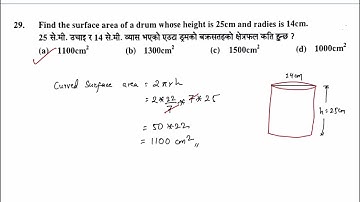 29. Find the surface area of a drum whose height is 25cm and radies is 14cm.
25 से.मी. उचाइ र 14 से.मी. व्यास भएको एउटा ड्रमको बक्रसतहको क्षेत्रफल कति हुन्छ ?
(a) 1100cm² (b) 1300cm² (c) 1500cm² (d) 1000cm²
Curved Surface area = 2πrh
= 2*22/7*7*25
= 50*22
= 1100 cm²,,
14cm
h=25cm